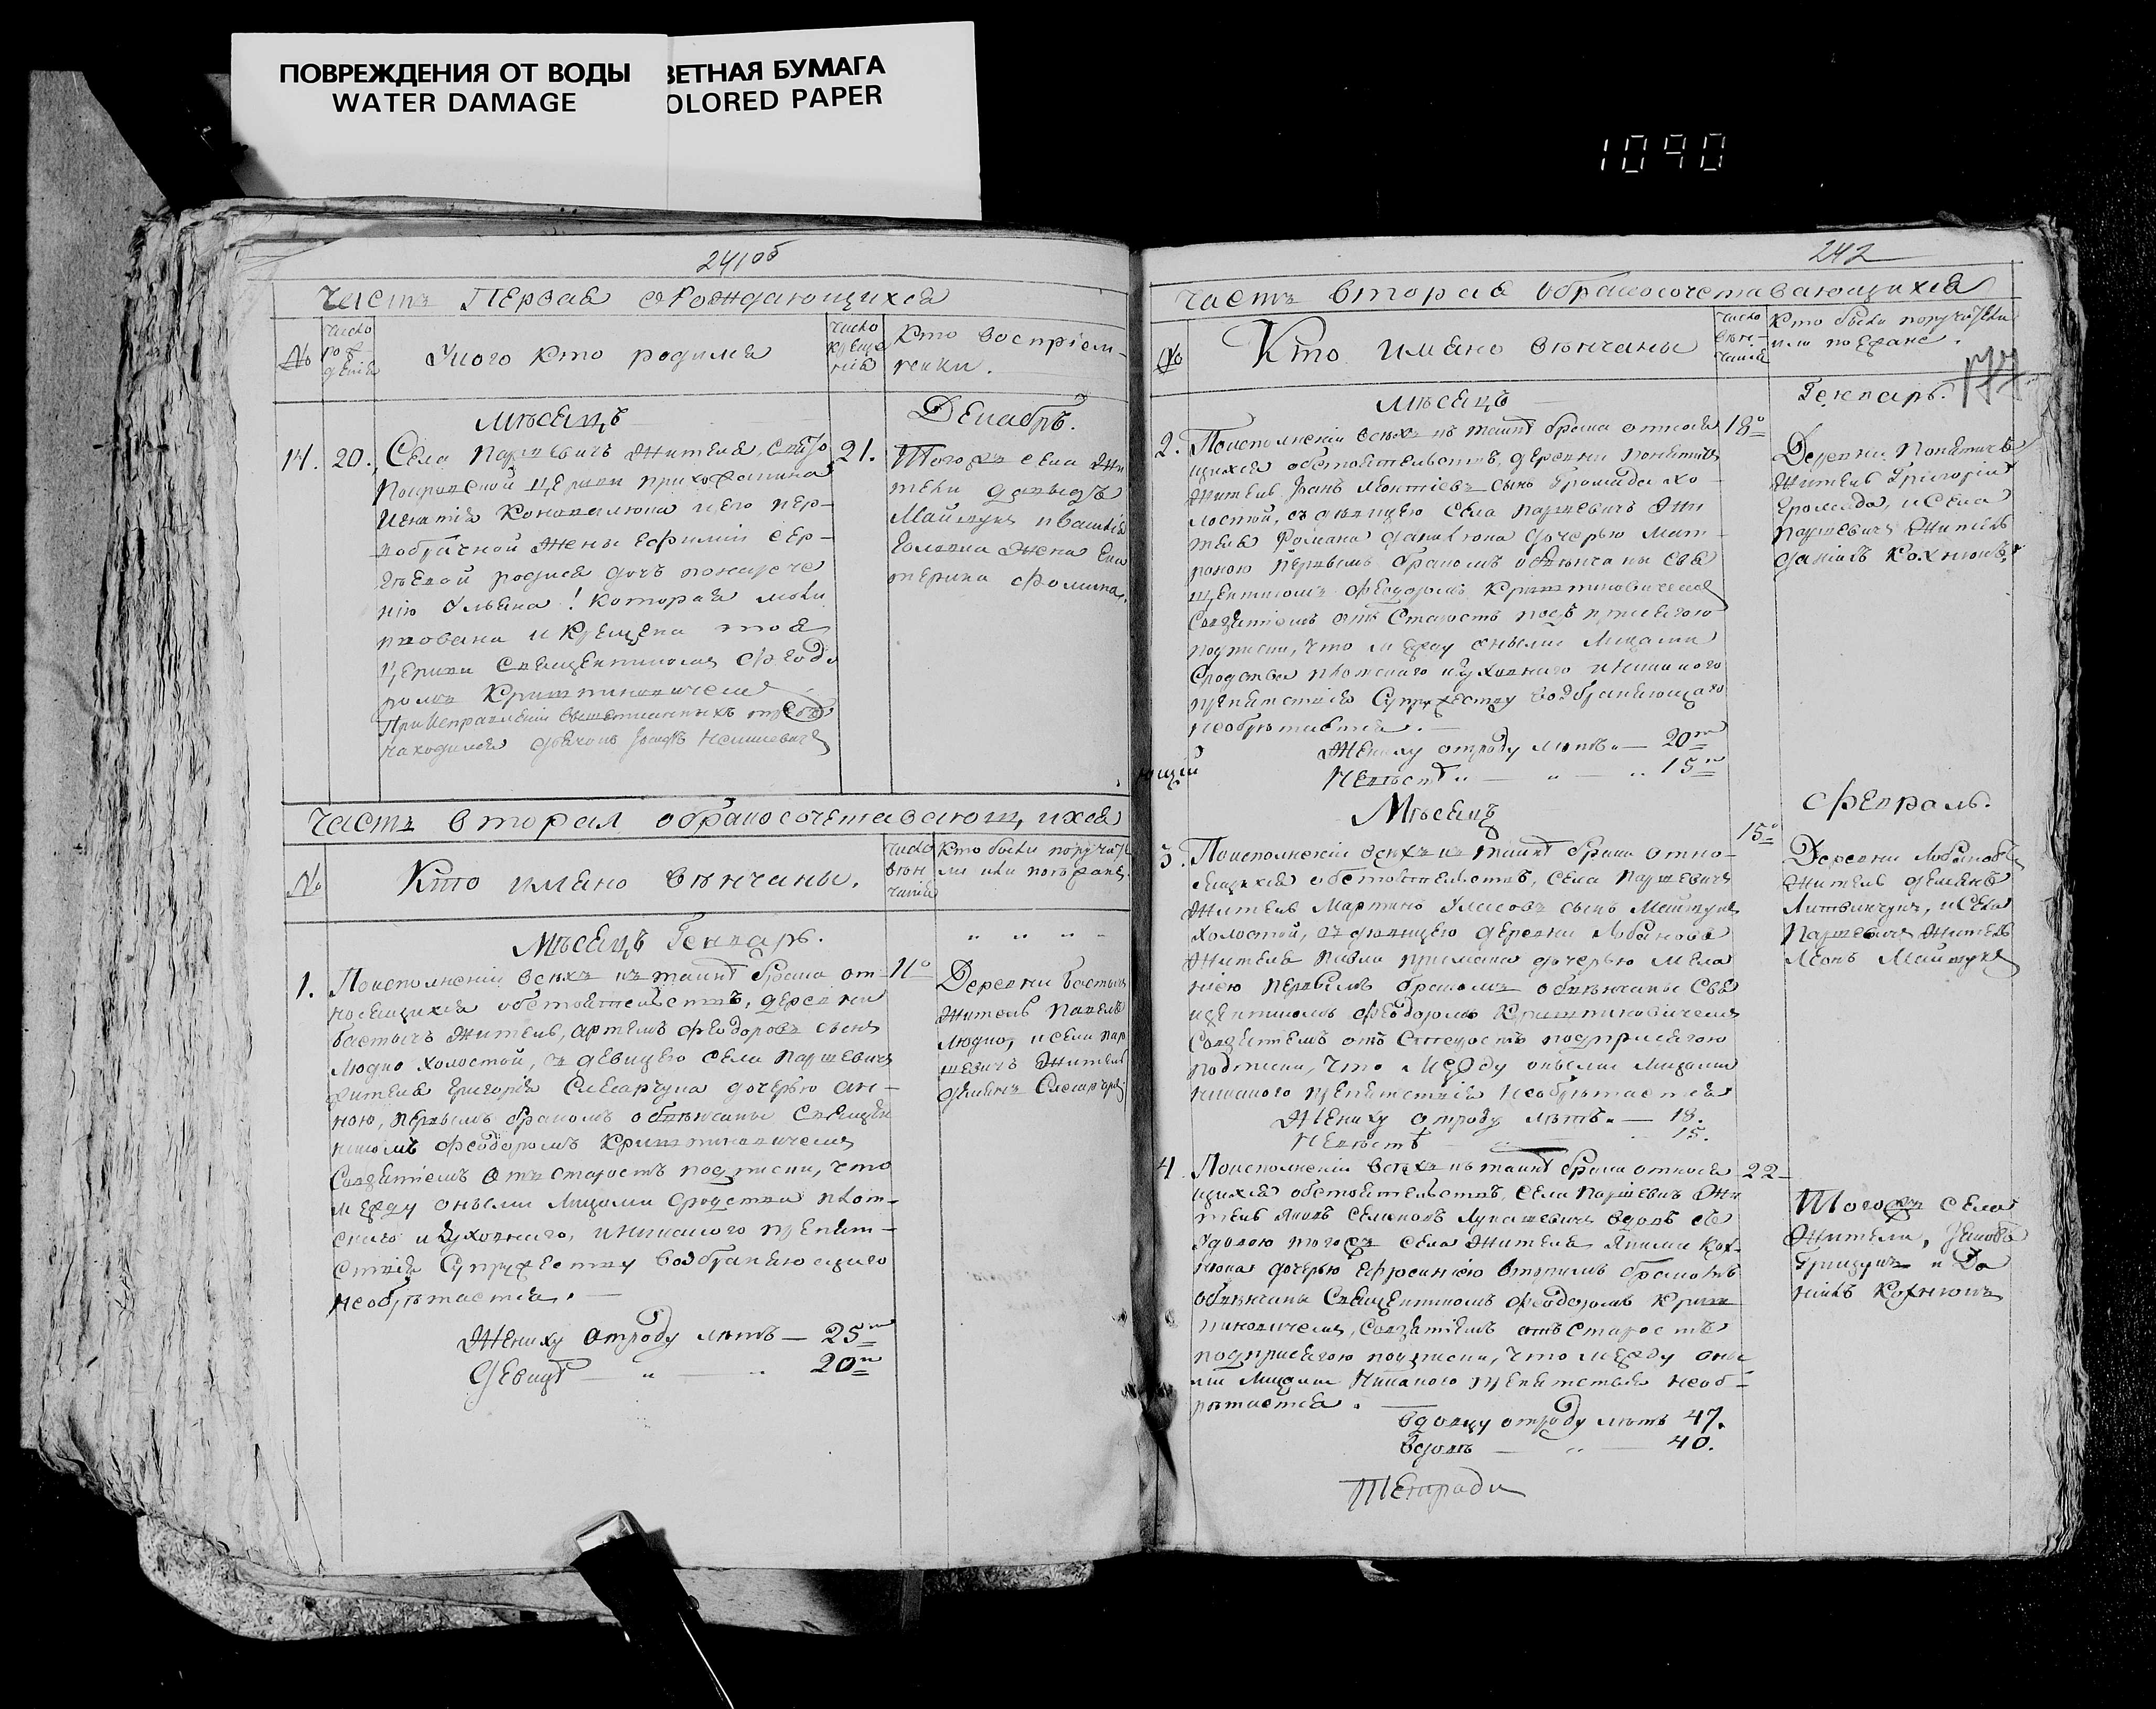 ПОВРЕЖДЕНИЯ ОТ ВОДЫ
WATER DAMAGE
ВЕТНАЯ БУМАГА
OLORED PAPER
1090
241об
Часть Первая о Рождающихся
№
число рождения
У кого кто родился
число крещения
Кто воспріем-
ники.
Мѣсяцъ
Декабрь.
14. 20. Села Паршевичъ жителя, Свято
Покровской церкви прихожанина
Игнатія Коновалюка и его пер-
вобрачной жены Евфиміи Сер-
родися дочь
нію Ульяна! которая моли
твована и крещена тоя
церкви Священникомъ Феодо
ромъ
При исправленіи вышеписанныхъ
находился
21.
Тогожъ села жи
тели Давыдъ
Майструкъ
жена Ека
терина Фомина.
Часть вторая о бракосочетавающихся
№
Кто имяно вѣнчаны.
число вѣнчанія
Кто были поручите
ли или поезжане
Мѣсяцъ Генварь.
1. По исполненіи всѣхъ къ таинѣ брака от-
носящихся обстоятельствъ, деревни
Бастычъ житель, Артемъ Феодоровъ сынъ
Людко холостой, съ девицею села Паршевичъ
жителя Григорія Слесарчука дочерью Ан-
ною, первымъ бракомъ обвѣнчаны Священ
никомъ Феодоромъ
Созятіемъ отъ старостъ подписки, что
между оными лицами сродства плот-
скаго и духовнаго, и никакого препят-
ствія супружеству возбраняющаго
необрѣтается. —
Жениху отроду лѣтъ — 25
Девицѣ — „ — „ 20
11
Деревни Бастычъ
житель Павелъ
Людко, и села Пар
шевичъ житель
Демьянъ Слесарчукъ
242
Часть вторая о бракосочетавающихся
№
Кто имяно вѣнчаны
число вѣн-
чанія
Кто были поручители
или поезжане.
177
Мѣсяцъ
Генварь.
2. По исполненіи всѣхъ къ таинѣ брака относя
щихся обстоятельствъ, деревни
житель Иванъ Леонтіевъ сынъ Громада хо
лостой, съ девицею села Паршевичъ жи
теля Романа дочерью Мат-
роною первымъ бракомъ обвѣнчаны Свя
щенникомъ Феодоромъ
Созятіемъ отъ старостъ подъ присягою
подписки, что между оными лицами
сродства плотскаго и духовнаго и никакого
препятствія супружеству возбраняющаго
необрѣтается. —
Жениху отроду лѣтъ — 20
Невѣстѣ „ — „ — „ 15
18
Деревни
житель Григорій
Громада, и села
Паршевичъ житель
Даніилъ Кохнюкъ
Мѣсяцъ
Февраль.
3. По исполненіи всѣхъ къ таинѣ брака отно-
сящихся обстоятельствъ, села Паршевичъ
житель Мартинъ сынъ Майструкъ
холостой, съ девицею деревни Лобановъ
жителя Павла дочерью Мела
ніею первымъ бракомъ обвѣнчаны Свя
щенникомъ Феодоромъ
Созятіемъ отъ старостъ подприсягою
подписки, что между оными лицами
никакого препятствія необрѣтается
Жениху отроду лѣтъ — 18.
Невѣстѣ — „ 15.
15
Деревни Лобановъ
житель Демьянъ
Литвинчукъ, и села
Паршевичъ житель
Леонъ Майструкъ
4 По исполненіи всѣхъ къ таинѣ брака относя
щихся обстоятельствъ, села Паршевичъ жи
тель Яковъ Семеновъ Лукашевичъ вдовъ съ
вдовою тогожъ села жителя
дочерью Ефросиніею вторымъ бракомъ
обвѣнчаны Священникомъ Феодоромъ
Созятіемъ отъ старостъ
подприсягою подписки, что между оны
ми лицами никакого препятствія необ-
рѣтается. —
вдовцу отроду лѣтъ 47.
вдовѣ — „ — 40.
22
Тогожъ села
жители,
Грицукъ и Да
ніилъ Кохнюкъ
Тетради